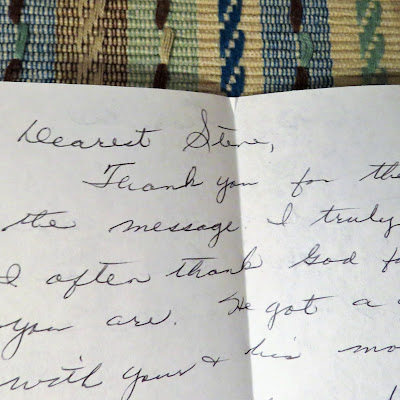 Dearest Steve,
Thank you for the
the message. I truly
I often thank God f
you are. He got a
with your & his mo